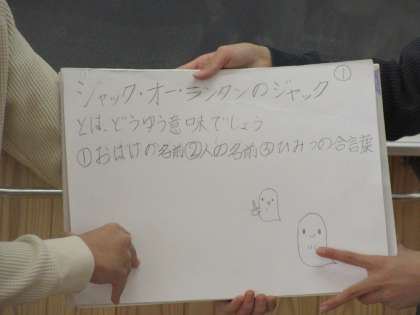 ジャック・オー・ランタンのジャック ①
とは、どうゆう意味でしょう
①おばけの名前②人の名前③ひみつの合言葉